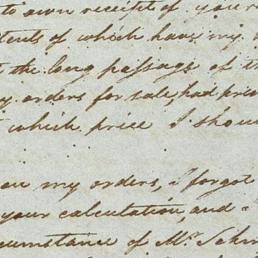 to own receipt of your
tents of which have my
the long passage of th
orders for sale, had pri
which price I shou
on my orders, I forgot
your calculation and
cumstance of Mr. Schw